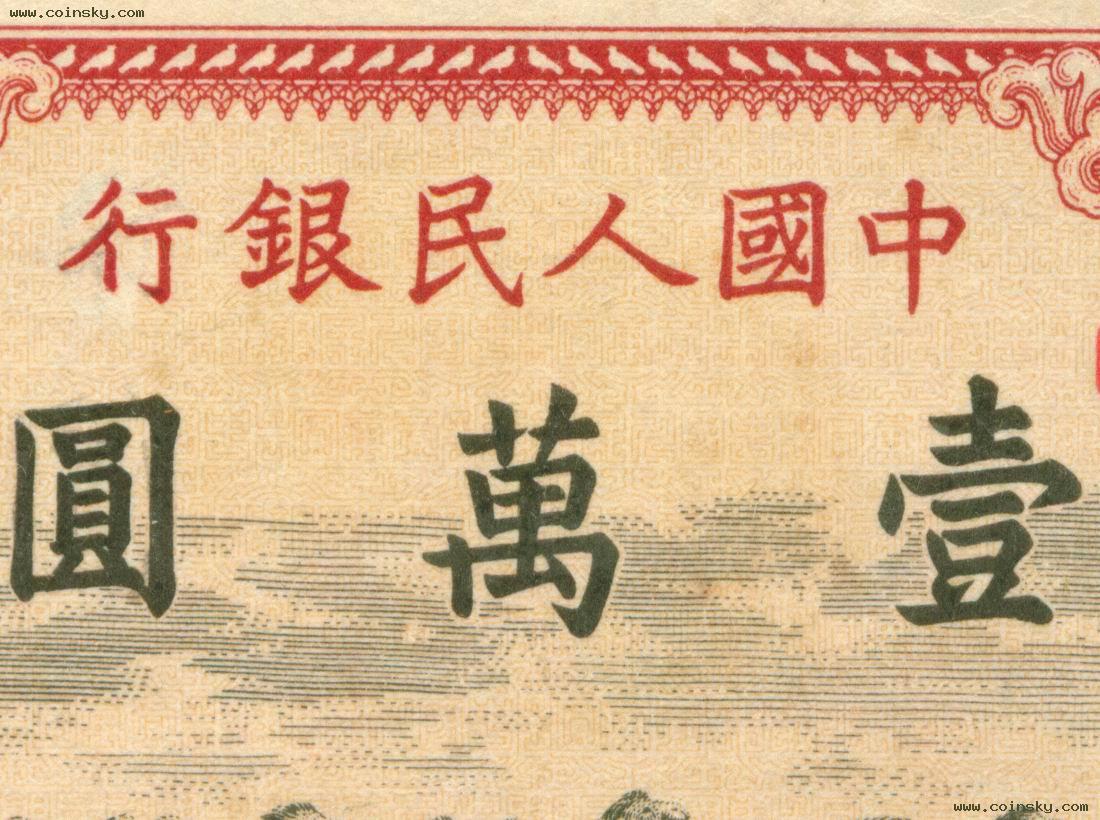 www.coinsky.com
中國人民銀行
壹萬圓
www.coinsky.com